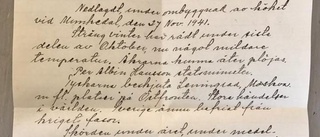 Nedlagdt, under ombyggnad av höket
vid Umnhedal, den 27 Nov 1941.
Sträng vinter har rådt under sista
delen av Oktober, nu något mildare
temperatur. Åkrarna kunna åter plöjas.
Per Albin Hansson statsminister.
Tyskarna beskjuta Leningrad, Moskva
m.fl. platser på Ostfronten. Stora händelser
i världen. Sverige ännu befriat från
kriget. fasor.
Skörden under året under medel.